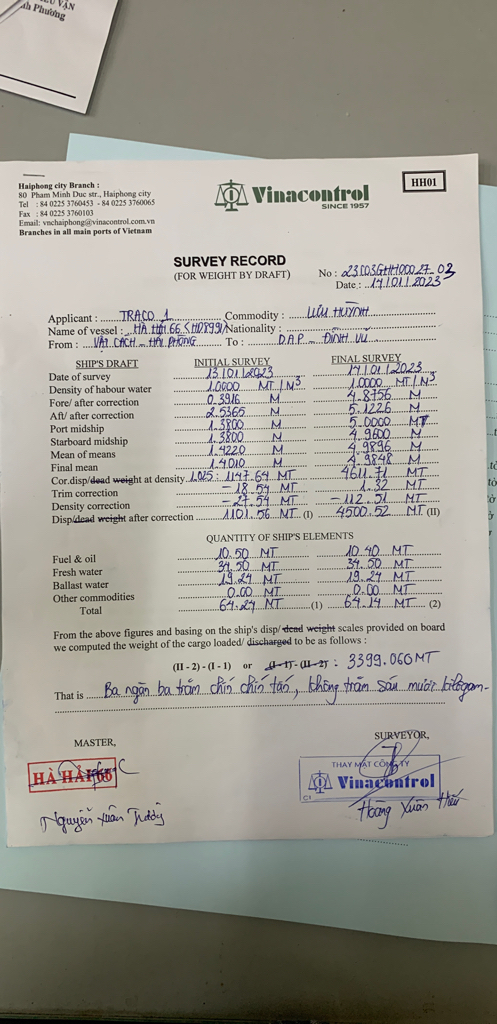 ẬN
nh Phương
Haiphong city Branch :
80 Pham Minh Duc str., Haiphong city
Tel : 84 0225 3760453 - 84 0225 3760065
Fax : 84 0225 3760103
Email: vnchaiphong@vinacontrol.com.vn
Branches in all main ports of Vietnam
Vinacontrol
SINCE 1957
HH01
SURVEY RECORD
(FOR WEIGHT BY DRAFT)
No : 23C03GHH00027-02
Date : 14/01/2023
Applicant : TRACO 1 Commodity : LƯU HUỲNH
Name of vessel : HÀ HẢI 66 <HD8991> Nationality :
From : VẬT CÁCH - HẢI PHÒNG To : D.A.P - ĐÌNH VŨ
SHIP'S DRAFT INITIAL SURVEY FINAL SURVEY
Date of survey 13/01/2023 14/01/2023
Density of habour water 1.0000 MT/M³ 1.0000 MT/M³
Fore/ after correction 0.3916 M 4.8756 M
Aft/ after correction 2.5365 M 5.1226 M
Port midship 1.3800 M 5.0000 M
Starboard midship 1.3800 M 4.9600 M
Mean of means 1.4220 M 4.9896 M
Final mean 1.4010 M 4.9848 M
Cor.disp/dead weight at density 1.025 : 1147.64 MT 4611.71 MT
Trim correction - 18.54 MT 1.32 MT
Density correction - 27.54 MT - 112.51 MT
Disp/dead weight after correction 1101.56 MT (I) 4500.52 MT (II)
QUANTITY OF SHIP'S ELEMENTS
Fuel & oil 10.50 MT 10.40 MT
Fresh water 34.50 MT 34.50 MT
Ballast water 19.24 MT 19.24 MT
Other commodities 0.00 MT 0.00 MT
Total 64.24 MT (1) 64.14 MT (2)
From the above figures and basing on the ship's disp/ dead weight scales provided on board
we computed the weight of the cargo loaded/ discharged to be as follows :
(II - 2) - (I - 1) or (I - 1) - (II - 2) : 3399.060 MT
That is Ba ngàn ba trăm chín chín tấn, không trăm sáu mươi kilogam.
MASTER, SURVEYOR,
HÀ HẢI 66
THAY MẶT CÔNG TY
Vinacontrol
Nguyễn Xuân Trường
Hoàng Xuân Hiếu